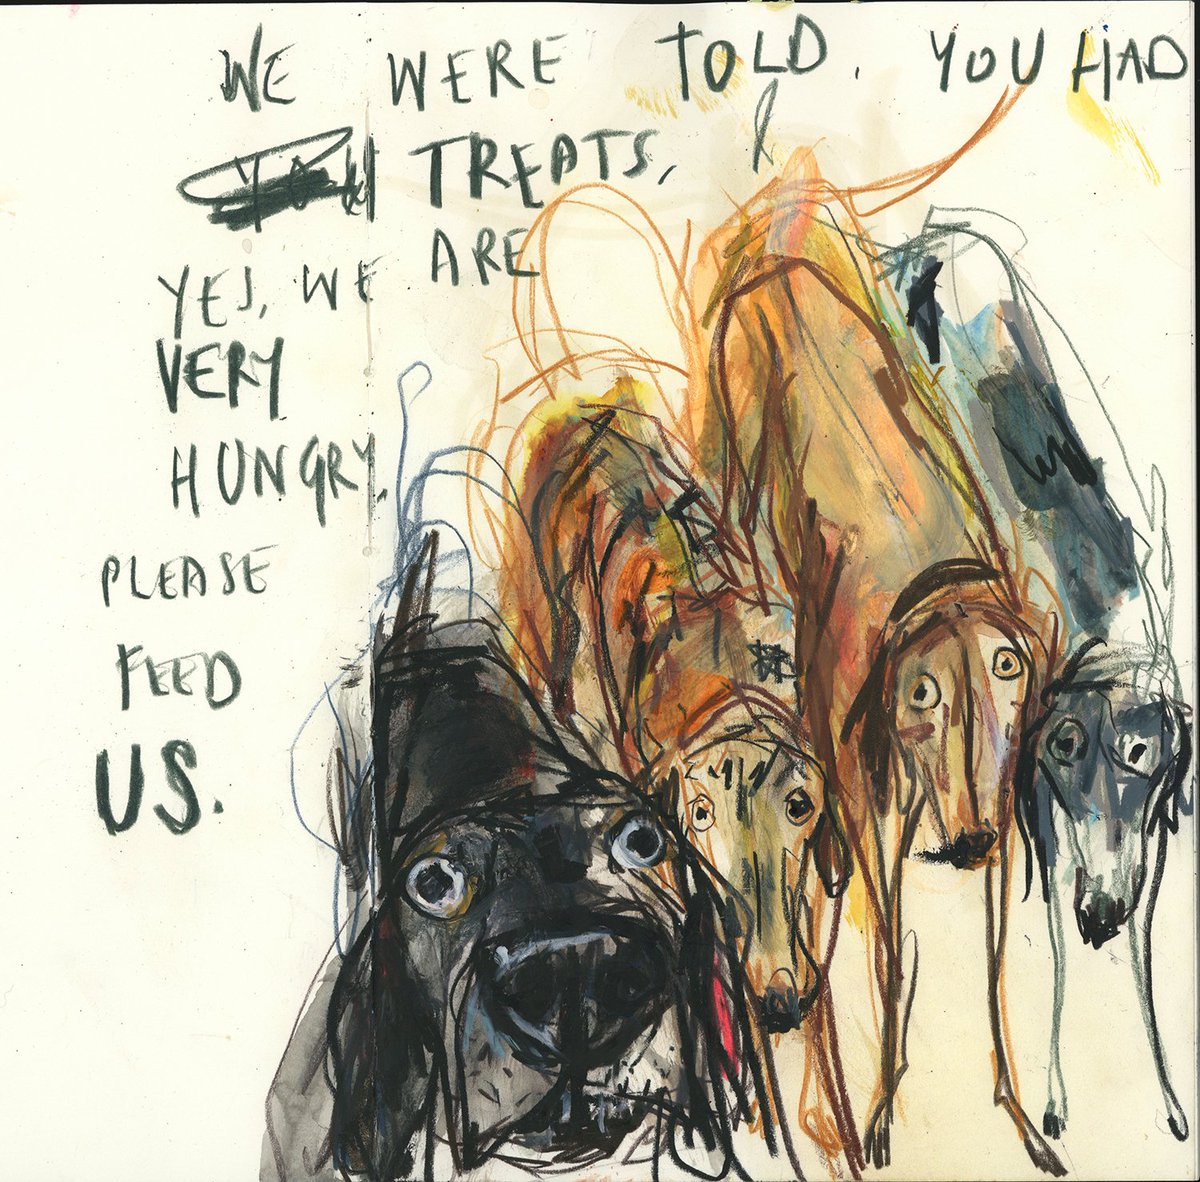 WE WERE TOLD, YOU HAD
TREATS, &
YES, WE ARE
VERY
HUNGRY,
PLEASE
FEED
US.